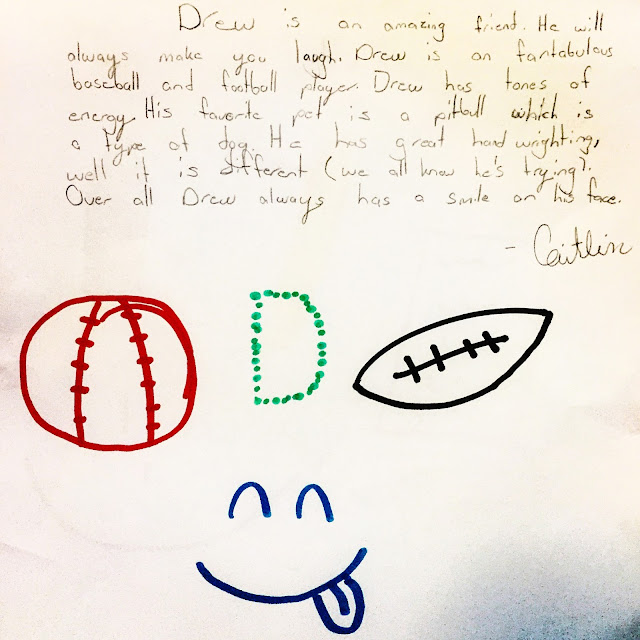 Drew is an amazing friend. He will
always make you laugh. Drew is an fantabulous
baseball and football player. Drew has tones of
energy. His favorite pet is a pitball which is
a type of dog. He has great hand wrighting,
well it is different (we all know he's trying).
Over all Drew always has a smile on his face.
- Caitlin
D